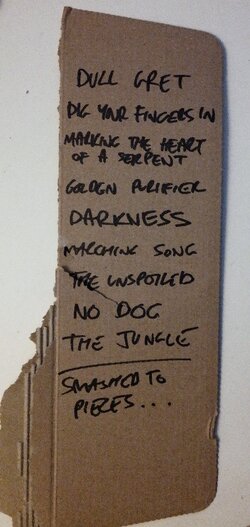 DULL GRET
DIG YOUR FINGERS IN
MARKING THE HEART
OF A SERPENT
GOLDEN PURIFIER
DARKNESS
MARCHING SONG
THE UNSPOILED
NO DOG
THE JUNGLE
SMASHED TO
PIEZES...